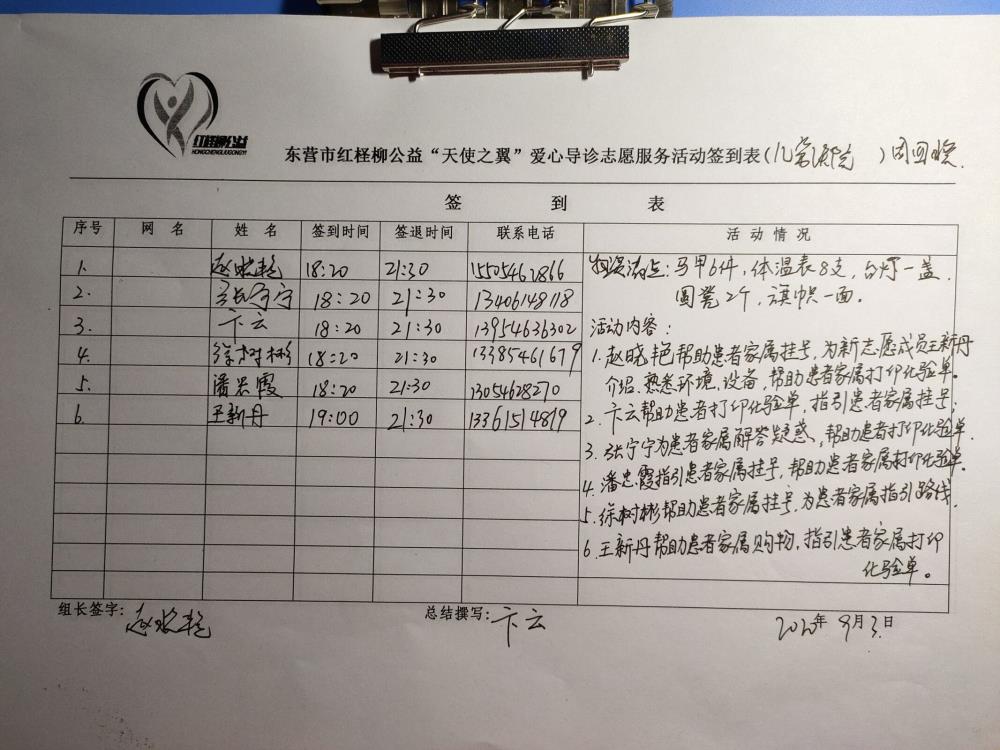 红柽柳公益
HONGCHENGLIUGONGYI
东营市红柽柳公益“天使之翼”爱心导诊志愿服务活动签到表(儿童医院)周四晚
签 到 表
序号 网 名 姓 名 签到时间 签退时间 联系电话 活 动 情 况
1. 赵晓艳 18:20 21:30 15505462866
2. 张宁宁 18:20 21:30 13406148118
3. 卞云 18:20 21:30 13954636302
4. 徐树彬 18:20 21:30 13385461679
5. 潘忠霞 18:20 21:30 13054628270
6. 王新丹 19:00 21:30 13361514819
物资清点:马甲6件,体温表8支,台灯一盏.
圆凳2个,旗帜一面。
活动内容:
1.赵晓艳帮助患者家属挂号,为新志愿成员王新丹
介绍.熟悉环境.设备,帮助患者家属打印化验单。
2.卞云帮助患者打印化验单,指引患者家属挂号;
3.张宁宁为患者家属解答疑惑,帮助患者打印化验单.
4.潘忠霞指引患者家属挂号,帮助患者家属打印化验单。
5.徐树彬帮助患者家属挂号,为患者家属指引路线.
6.王新丹帮助患者家属购物,指引患者家属打印
化验单。
组长签字:赵晓艳 总结撰写:卞云 2020年9月3日